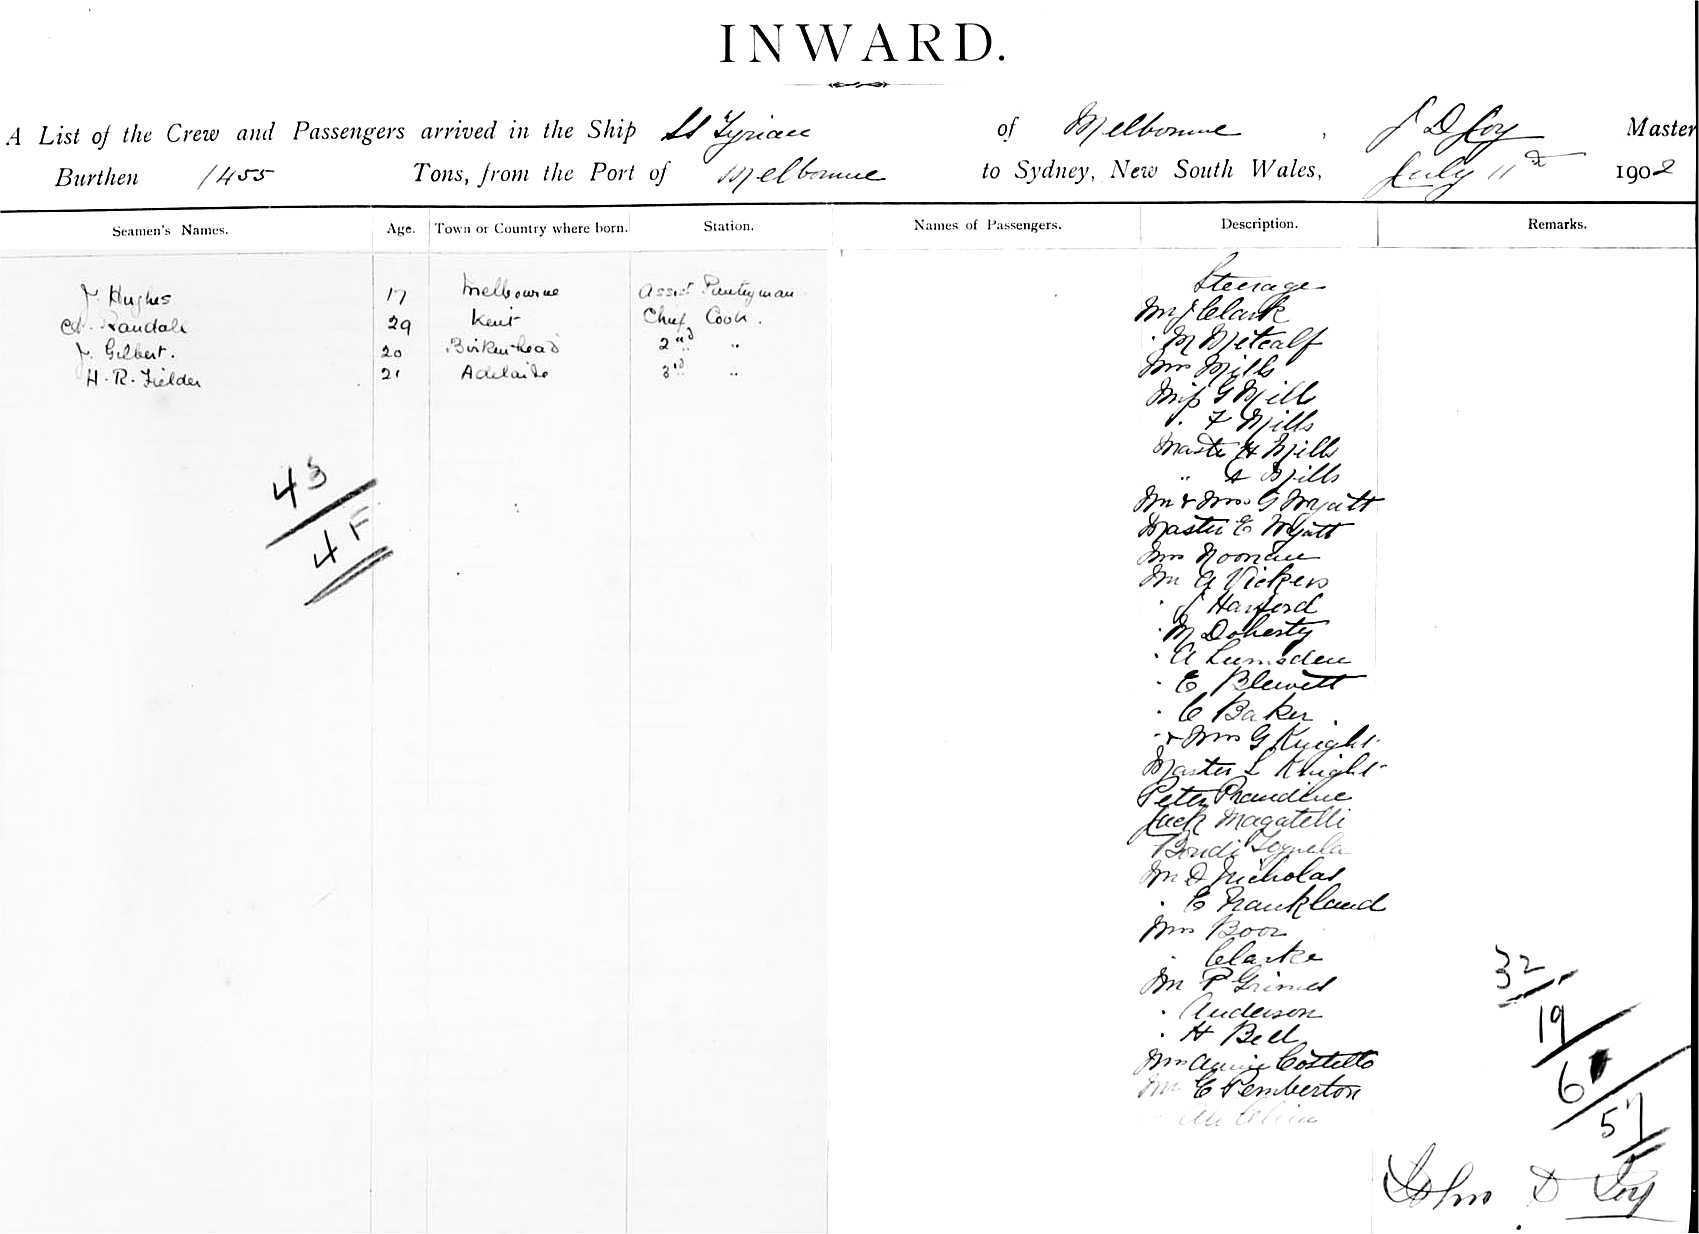 INWARD.
A List of the Crew and Passengers arrived in the Ship SS Tyrian of Melbourne, J D Loy Master
Burthen 1455 Tons, from the Port of Melbourne to Sydney, New South Wales, July 11th 1902
Seamen's Names. Age. Town or Country where born. Station. Names of Passengers. Description. Remarks.
J. Hughes 17 Melbourne Assist Pantryman
Randall 29 Kent Chief Cook.
J. Gilbert. 20 Birkenhead 2nd "
H. R. Fielder 21 Adelaide 3rd "
43
4 F
Steerage
Mr J Clark
" M Metcalf
Mrs Mills
Miss G Mills
" F Mills
Master H Mills
" A Mills
Mr & Mrs G Wyatt
Master E Wyatt
Mrs Noonan
Mr A Vickers
" J Harford
" M Doherty
" A Lumsden
" E Blewett
" C Baker
" & Mrs G Knight
Master L Knight
Peter
Jack Magatelli
Bondi
Mr D Nicholas
" E Frankland
Mrs Boor
" Clarke
Mr P Grimes
" Anderson
" H Bell
Mrs Annie Costello
Mr E Pemberton
32
19
6
57
John D Loy